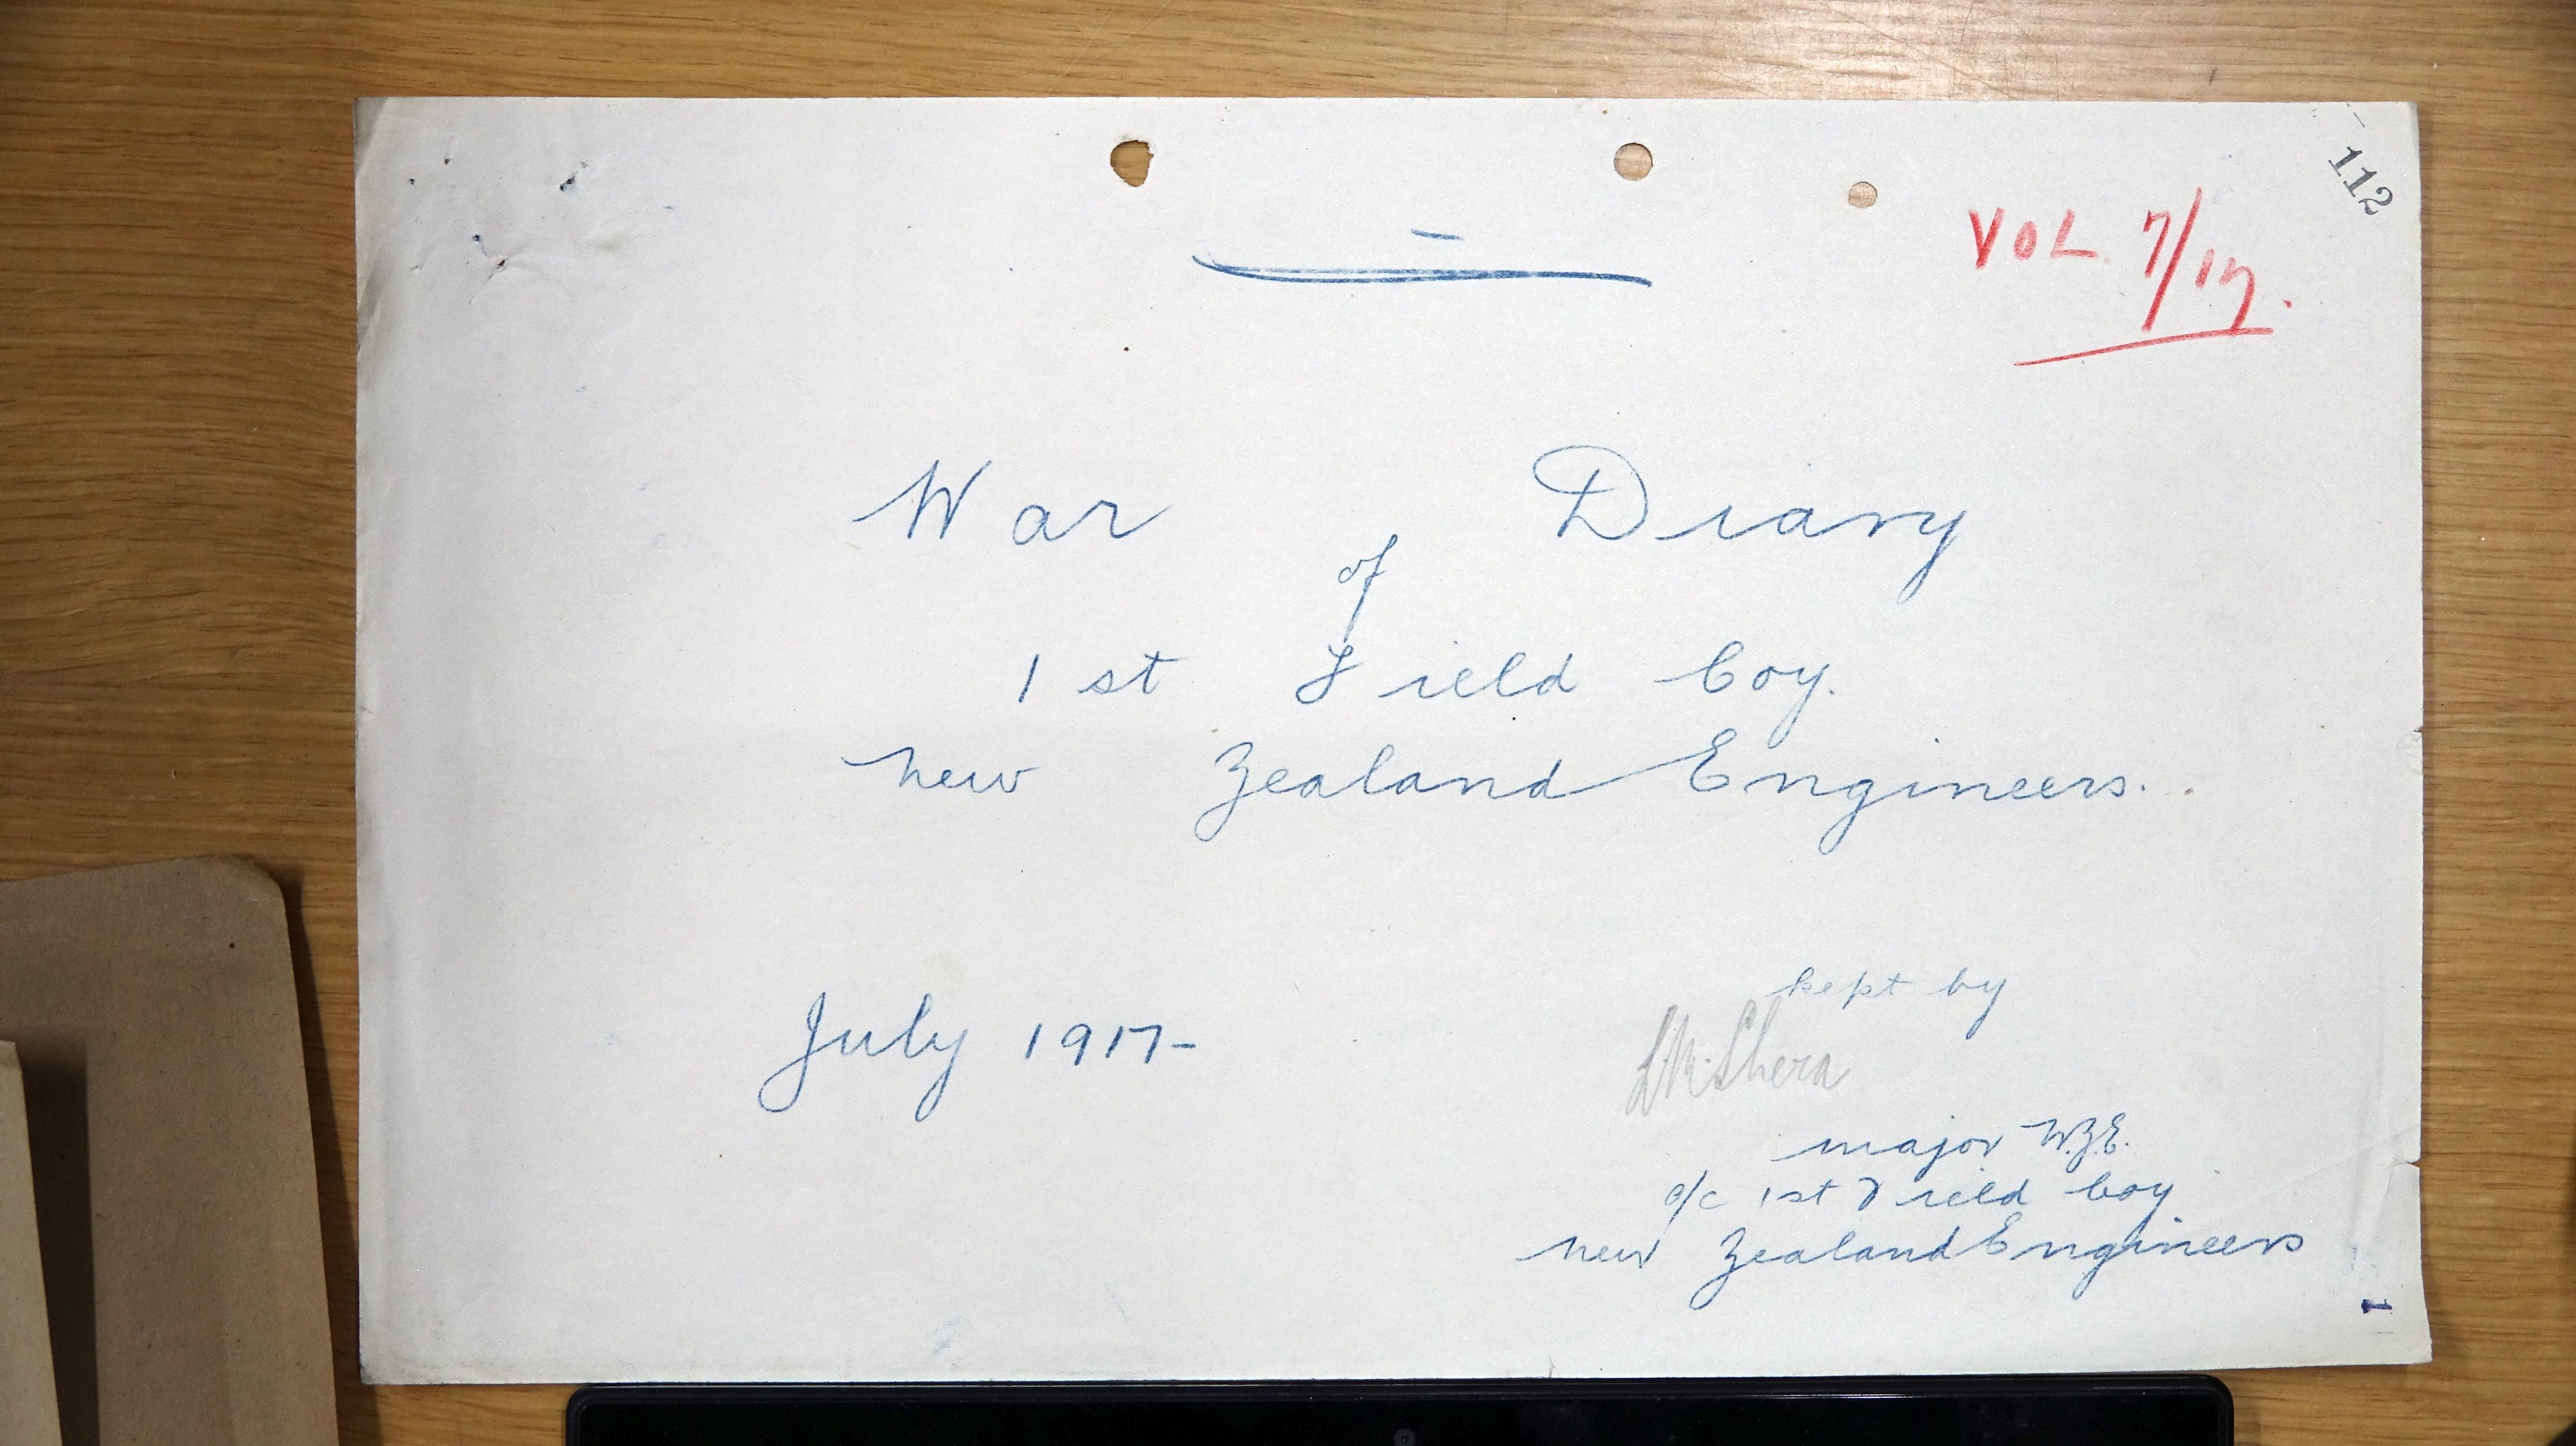 112
VOL. 7/17.
War Diary
of
1st Field Coy.
New Zealand Engineers.
July 1917-
kept by
L.M. Shera
Major N.Z.E.
o/c 1st Field Coy
New Zealand Engineers
1